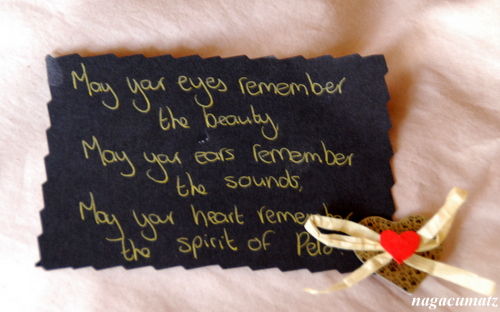 May your eyes remember
the beauty,
May your ears remember
the sounds,
May your heart remember
the spirit of
nagacumatz